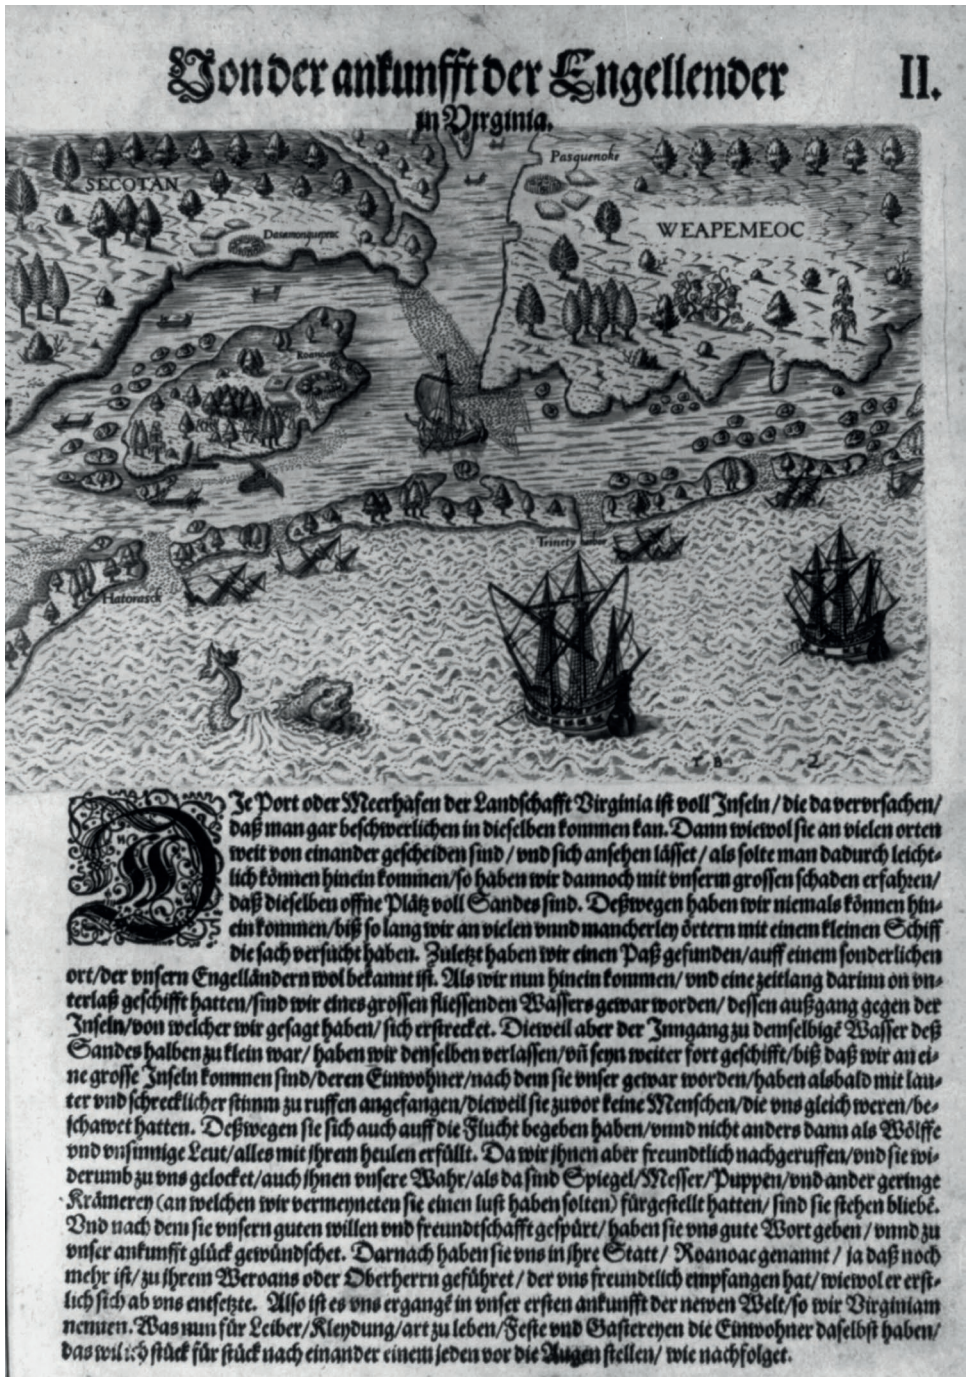 Von der ankunfft der Engellender
II.
in Virginia.
Pasquenoke
SECOTAN
WEAPEMEOC
Dasamonquepeuc
Roanoac
Trinety harbor
Hatorasck
T B
2
DJe Port oder Meerhafen der Landschafft Virginia ist voll Jnseln/ die da vervrsachen/
daß man gar beschwerlichen in dieselben kommen kan. Dann wiewol sie an vielen orten
weit von einander gescheiden sind/ vnd sich ansehen lässet/ als solte man dadurch leicht-
lich können hinein kommen/ so haben wir dannoch mit vnserm grossen schaden erfahren/
daß dieselben offne Plätz voll Sandes sind. Deßwegen haben wir niemals können hin-
ein kommen/ biß so lang wir an vielen vnnd mancherley örtern mit einem kleinen Schiff
die sach versucht haben. Zuletzt haben wir einen Paß gefunden/ auff einem sonderlichen
ort/ der vnsern Engelländern wol bekannt ist. Als wir nun hinein kommen/ vnd eine zeitlang darinn on vn-
terlaß geschifft hatten/ sind wir eines grossen fliessenden Wassers gewar worden/ dessen außgang gegen der
Jnseln/ von welcher wir gesagt haben/ sich erstrecket. Dieweil aber der Jnngang zu demselbigē Wasser deß
Sandes halben zu klein war/ haben wir denselben verlassen/ vñ seyn weiter fort geschifft/ biß daß wir an ei-
ne grosse Jnseln kommen sind/ deren Einwohner/ nach dem sie vnser gewar worden/ haben alsbald mit lau-
ter vnd schrecklicher stimm zu ruffen angefangen/ dieweil sie zuvor keine Menschen/ die vns gleich weren/ be-
schawet hatten. Deßwegen sie sich auch auff die Flucht begeben haben/ vnnd nicht anders dann als Wölffe
vnd vnsinnige Leut/ alles mit jhrem heulen erfüllt. Da wir jhnen aber freundtlich nachgeruffen/ vnd sie wi-
derumb zu vns gelocket/ auch jhnen vnsere Wahr/ als da sind Spiegel/ Messer/ Puppen/ vnd ander geringe
Krämerey (an welchen wir vermeyneten sie einen lust haben solten) fürgestellt hatten/ sind sie stehen bliebē.
Vnd nach dem sie vnsern guten willen vnd freundtschafft gespürt/ haben sie vns gute Wort geben/ vnnd zu
vnser ankunfft glück gewündschet. Darnach haben sie vns in jhre Statt/ Roanoac genannt/ ja daß noch
mehr ist/ zu jhrem Weroans oder Oberherrn geführet/ der vns freundtlich empfangen hat/ wiewol er erst-
lich sich ab vns entsetzte. Also ist es vns ergangē in vnser ersten ankunfft der newen Welt/ so wir Virginiam
nennen. Was nun für Leiber/ Kleydung/ art zu leben/ Feste vnd Gastereyen die Einwohner daselbst haben/
das wil ich stück für stück nach einander einem jeden vor die Augen stellen/ wie nachfolget.